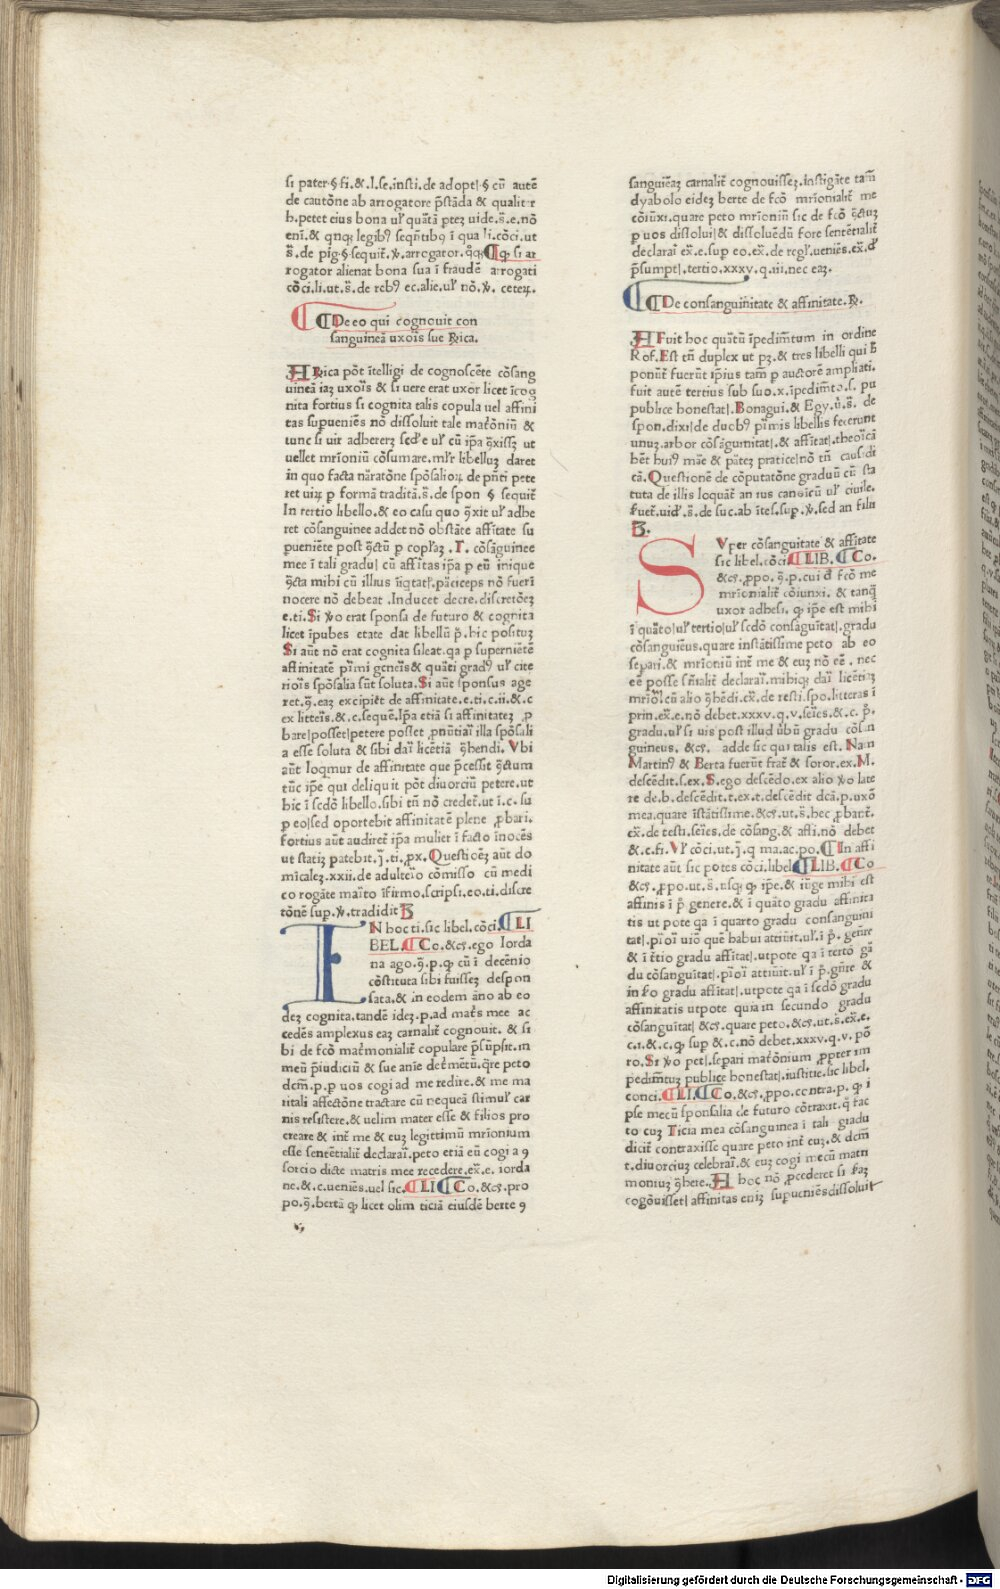 si pater.§ fi.&.l.se.insti.de adopt.§ cū autē
de cautōne ab arrogatore p̄stāda & qualiter
h.petet eius bona ul' quātā ptez uide.s̄.e.nō
eni.& qnq; legib9 seqn̄tib9 ī qua li.cōci.ut
s̄.de pig.§ sequit̄.℣.arrogator. ¶ q; si ar
rogator alienat bona sua ī fraudē arrogati
cōci.li.ut.s̄.de reb9 ec.alie.ul' nō.℣. ceteꝝ.
¶ De eo qui cognouit con
sanguineā uxoīs sue Rrica.
Rrica pōt ītelligi de cognoscēte cōsang
uineā iaz uxoīs & si uere erat uxor licet īcog
nita fortius si cognita talis copula uel affini
tas supueniēs nō dissoluit tale mat'ōniū &
tunc si uir adhereret sed'e ul' cū ip̄a ꝯxissz ut
uellet mr̄ioniū cōsumare.mlr̄ libelluz daret
in quo facta nāratōne spōsalioꝝ de pn̄ti pete
ret uiꝝ p formā traditā.s̄.de spon § sequit̄
In tertio libello.& eo casu quo ꝯxit ul' adhe
ret cōsanguinee addet nō obstāte affītate su
pueniēte post ꝯctū p copl'az . T. cōsāguinee
mee ī tali gradu cū affītas ip̄a p eū inique
ꝯcta mihi cū illius īiqtat.pāiceps nō fueri
nocere nō debeat .Inducet decre.discretōez
e.ti.Si ℣o erat sponsa de futuro & cognita
licet īpubes etate dat libellū p̄.hic posituz
Si aūt nō erat cognita sileat.qa p superniētē
affinitatē pīmi gēneīs & quāti grad9 ul' cite
rioīs spōsalia sūt soluta.Si aūt sponsus age
ret.ꝯ.eaz excipiēt de affinitate.e.ti.c.ii.& c
ex litteīs.& c.sequē.Ip̄a etiā si affinitatez ꝓ
bare posset petere posset ,pnūtiaī illa spōsali
a esse soluta & sibi daī licētiā ꝯhendi. Vbi
aūt loqmur de affinitate que p̄cessit ꝯctum
tūc ip̄e qui deliquit pōt diuorciū petere.ut
hic ī scdō libello.sibi tn̄ nō credet̄.ut ī.c. su
p eo sed oportebit affinitatē plene ꝓbari.
fortius aūt audiret̄ ip̄a mulier ī facto inocēs
ut statiz patebit.j.ti.ꝓx.Questiōez aūt do
mīcalez.xxii.de adulteīo cōmisso cū medi
co rogāte maīto īfirmo.scripsi.eo.ti.discre
tōnē sup.℣.tradidit B
IN hoc ti.sic libel.cōci.¶ LI
BEL.¶ Co.&cs.ego Iorda
na ago.ꝯ.p.q; cū ī decēnio
cōstituta sibi fuissez despon
sata.& in eodem āno ab eo
dez cognita.tandē idez.p.ad mat̄s mee ac
cedēs amplexus eaz carnalit̄ cognouit. & si
bi de fcō mat̄monialit̄ copulare p̄sūpsit.in
meū p̄iudiciū & sue anīe det̄mētū.q̄re peto
dcm̄.p.p uos cogi ad me redire.& me ma
ritali affectōne tractare cū nequeā stimul' car
nis resistere.& uelim mater esse & filios pro
creare & int̄ me & euz legittimū mr̄ionium
esse sentētialit̄ declaraī.peto etiā eū cogi a ꝯ
sortio dicte matris mee recedere.ex̄.e. iorda
ne.& c.ueniēs.uel sic.¶ LI ¶ Co.&cs.pro
po.ꝯ.bertā q; licet olim ticiā eiusdē berte ꝯ
sanguiēaz carnalit̄ cognouissez.īstigāte tam̄
dyabolo eidez berte de fcō mr̄ionialit̄ me
cōiūxi.quare peto mr̄ioniū sic de fcō ꝯctuz
p uos dissolui & dissoluēdū fore sentētialit̄
declaraī ex̄.e.sup eo.ex̄.de regl'.ueniēs.ex̄.d'
p̄sumpt.tertio.xxxv.q.iii.nec eaz.
¶ De consanguīnitate & affinitate.R.
Fuit hoc quātū īpedim̄tum in ordine
Rof.Est tn̄ duplex ut pz.& tres libelli qui h̄
ponūt̄ fuerūt ip̄ius tam̄ p auctorē ampliati.
fuit autē tertius sub suo.x.īpedim̄to.s. pu
publice honestat.Bonagui.& Egy.ū.s̄. de
spon.dixi de duob9 pīmis libellis fecerunt
unuz.arbor cōsāguinitat.& affītat.theoīcā
hēt hui9 māe & pātez practice nō tn̄ causidi
cā.Questionē de cōputatōne graduū cū sta
tuta de illis loquāt̄ an ius canōicū ul' ciuile.
h̄uet̄.uid'.s̄.de suc.ab ītes.sup.℣.sed an filii
B.
SVper cōsanguitate & affītate
sic libel.cōci.¶ LIB. ¶ Co.
&cs.ꝓpo.ꝯ.p.cui d' fcō me
mr̄ionialit̄ cōiunxi. & tanq̄
uxor adhesi. q; ip̄e est mihi
ī quāto ul' tertio ul' scdō consaguītat.gradu
cōsanguiēus.quare instātissime peto ab eo
separi.& mr̄ioniū int̄ me & euz nō eē . nec
eē posse sn̄ialit̄ declaraī.mihiq; daī licētiaz
mr̄iōī cū alio ꝯhēdi.ex̄.de resti.spo.litteras ī
prin.ex̄.e.nō debet.xxxv.q.v.seīes.& c. p̄.
gradu.ul' si uis post illud ūbū gradu cōsan
guineus. &cs. adde sic qui talis est. Nam
Martin9 & Berta fuerūt frat̄ & soror.ex.M.
descēdit.s.ex.S.ego descēdo.ex alio ℣o late
re de.b.descēdit.t.ex.t.descēdit dcā.p.uxō
mea.quare īstātissime.&cs.ut.s̄.hec ꝓbant̄.
ex̄.de testi.seīes.de cōsang.& affi.nō debet
& c.fi.Vl' cōci.ut.j.q ma.ac.po.¶ In affi
nitate aūt sic potes cōci.libel ¶ LIB.¶ Co
&cs.ꝓpo.ut.s̄.usq; q; ip̄e.& iūge mihi est
affinis ī p̄ genere.& ī quāto gradu affinita
tis ut pote qa ī quarto gradu consanguini
tat.pioī uiō quē habui attinūit.ul'.ī p̄. gen̄re
& ī t̄tio gradu affītat.utpote qa ī tertō gā
du cōsanguītat.pīoī attinūit.ul' ī p̄.gn̄re &
in s̄o gradu affītat.utpote qa ī scdō gradu
affinitatis utpote quia in secundo gradu
cōsanguītat &cs.quare peto.&cs.ut.s̄.ex̄.e.
c.i.& c.q; sup & c.nō debet.xxxv.q.v. pō
ro.Si ℣o pet.separi mat̄ōnium ꝓpter im
pedim̄tuz publice honestat.iustitie.sic libel.
conci.¶ LI.¶ Co.&cs.ꝓpo.contra.p. q; i
pse mecū sponsalia de futuro cōtraxit.q̄ fac
to cuz Ticia mea cōsanguinea ī tali gradu
dicit̄ contraxisse quare peto int̄ euz.& dcm̄
t.diuorciuz celebraī.& euz cogi mecū matri
moniuz ꝯhere. A hoc nō ꝓcederet si h̄az
cogōuisset affinitas eniz supueniēs dissoluit
Digitalisierung gefördert durch die Deutsche Forschungsgemeinschaft - DFG